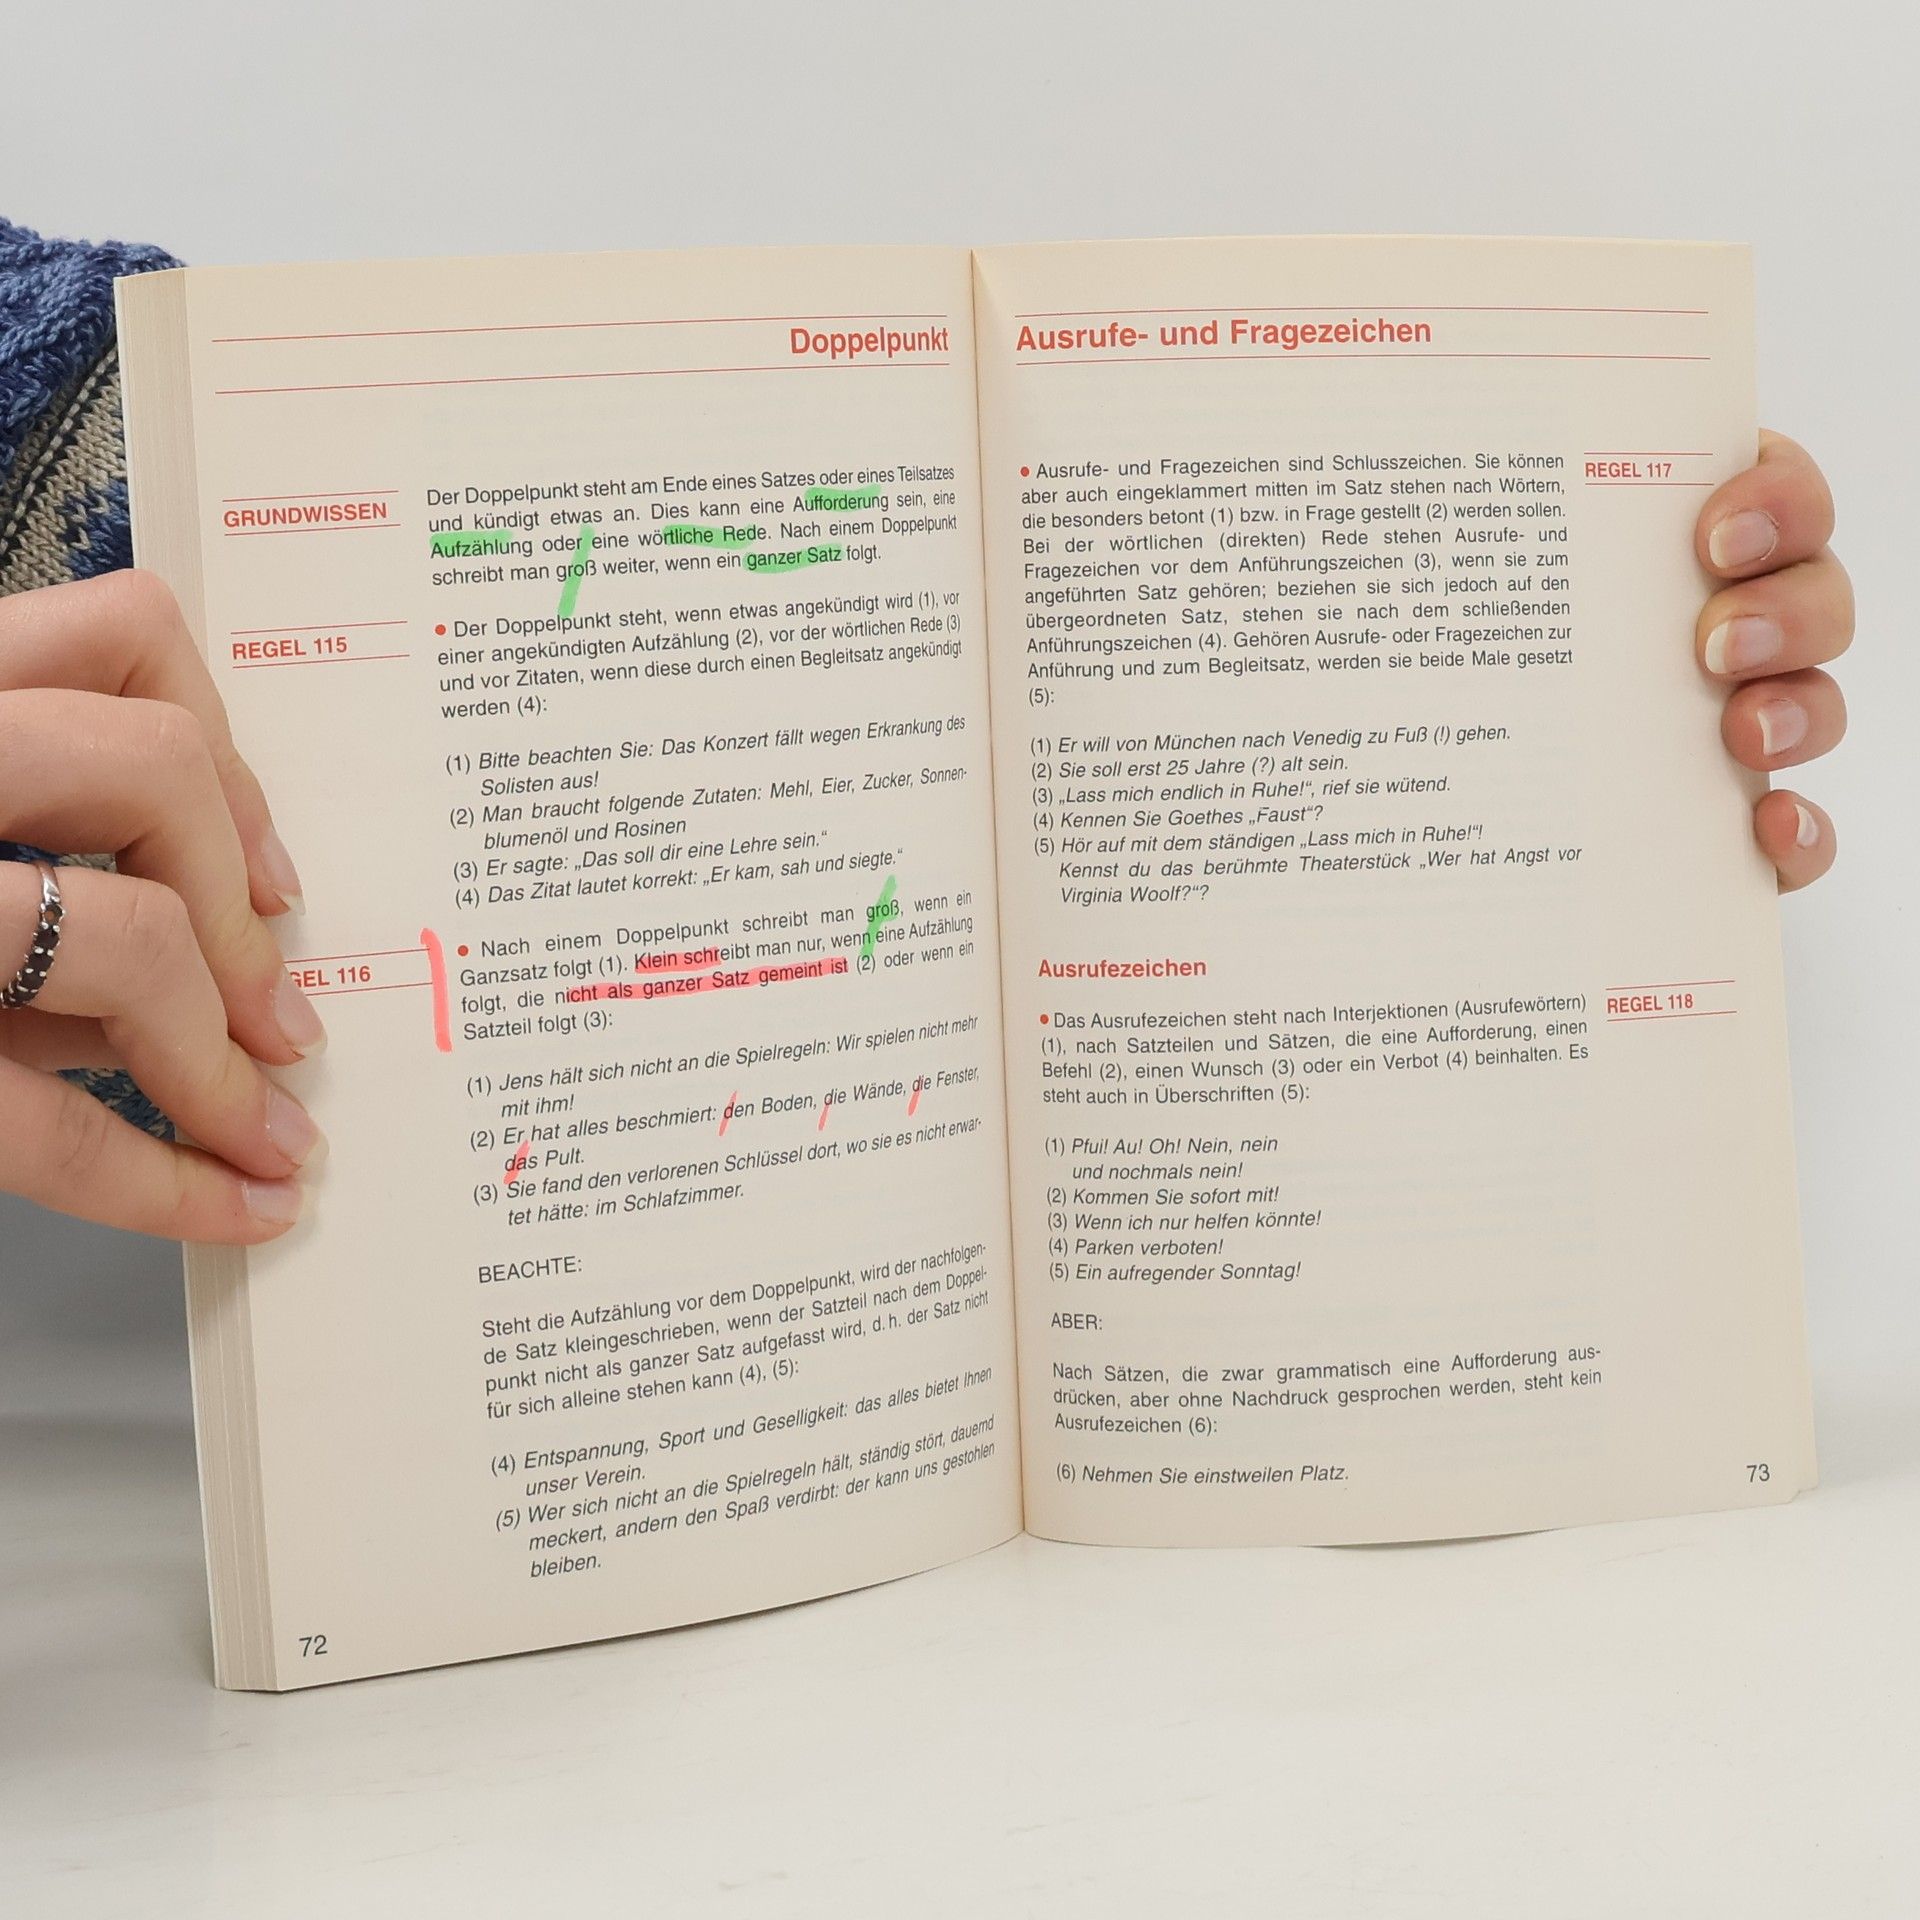 Doppelpunkt
GRUNDWISSEN
Der Doppelpunkt steht am Ende eines Satzes oder eines Teilsatzes
und kündigt etwas an. Dies kann eine Aufforderung sein, eine
Aufzählung oder eine wörtliche Rede. Nach einem Doppelpunkt
schreibt man groß weiter, wenn ein ganzer Satz folgt.
REGEL 115
• Der Doppelpunkt steht, wenn etwas angekündigt wird (1), vor
einer angekündigten Aufzählung (2), vor der wörtlichen Rede (3)
und vor Zitaten, wenn diese durch einen Begleitsatz angekündigt
werden (4):
(1) Bitte beachten Sie: Das Konzert fällt wegen Erkrankung des
Solisten aus!
(2) Man braucht folgende Zutaten: Mehl, Eier, Zucker, Sonnen-
blumenöl und Rosinen
(3) Er sagte: „Das soll dir eine Lehre sein.“
(4) Das Zitat lautet korrekt: „Er kam, sah und siegte.“
GEL 116
• Nach einem Doppelpunkt schreibt man groß, wenn ein
Ganzsatz folgt (1). Klein schreibt man nur, wenn eine Aufzählung
folgt, die nicht als ganzer Satz gemeint ist (2) oder wenn ein
Satzteil folgt (3):
(1) Jens hält sich nicht an die Spielregeln: Wir spielen nicht mehr
mit ihm!
(2) Er hat alles beschmiert: den Boden, die Wände, die Fenster,
das Pult.
(3) Sie fand den verlorenen Schlüssel dort, wo sie es nicht erwar-
tet hätte: im Schlafzimmer.
BEACHTE:
Steht die Aufzählung vor dem Doppelpunkt, wird der nachfolgen-
de Satz kleingeschrieben, wenn der Satzteil nach dem Doppel-
punkt nicht als ganzer Satz aufgefasst wird, d. h. der Satz nicht
für sich alleine stehen kann (4), (5):
(4) Entspannung, Sport und Geselligkeit: das alles bietet Ihnen
unser Verein.
(5) Wer sich nicht an die Spielregeln hält, ständig stört, dauernd
meckert, andern den Spaß verdirbt: der kann uns gestohlen
bleiben.
72
Ausrufe- und Fragezeichen
• Ausrufe- und Fragezeichen sind Schlusszeichen. Sie können
aber auch eingeklammert mitten im Satz stehen nach Wörtern,
die besonders betont (1) bzw. in Frage gestellt (2) werden sollen.
Bei der wörtlichen (direkten) Rede stehen Ausrufe- und
Fragezeichen vor dem Anführungszeichen (3), wenn sie zum
angeführten Satz gehören; beziehen sie sich jedoch auf den
übergeordneten Satz, stehen sie nach dem schließenden
Anführungszeichen (4). Gehören Ausrufe- oder Fragezeichen zur
Anführung und zum Begleitsatz, werden sie beide Male gesetzt
(5):
REGEL 117
(1) Er will von München nach Venedig zu Fuß (!) gehen.
(2) Sie soll erst 25 Jahre (?) alt sein.
(3) „Lass mich endlich in Ruhe!“, rief sie wütend.
(4) Kennen Sie Goethes „Faust“?
(5) Hör auf mit dem ständigen „Lass mich in Ruhe!“!
Kennst du das berühmte Theaterstück „Wer hat Angst vor
Virginia Woolf?“?
Ausrufezeichen
• Das Ausrufezeichen steht nach Interjektionen (Ausrufewörtern)
(1), nach Satzteilen und Sätzen, die eine Aufforderung, einen
Befehl (2), einen Wunsch (3) oder ein Verbot (4) beinhalten. Es
steht auch in Überschriften (5):
REGEL 118
(1) Pfui! Au! Oh! Nein, nein
und nochmals nein!
(2) Kommen Sie sofort mit!
(3) Wenn ich nur helfen könnte!
(4) Parken verboten!
(5) Ein aufregender Sonntag!
ABER:
Nach Sätzen, die zwar grammatisch eine Aufforderung aus-
drücken, aber ohne Nachdruck gesprochen werden, steht kein
Ausrufezeichen (6):
(6) Nehmen Sie einstweilen Platz.
73